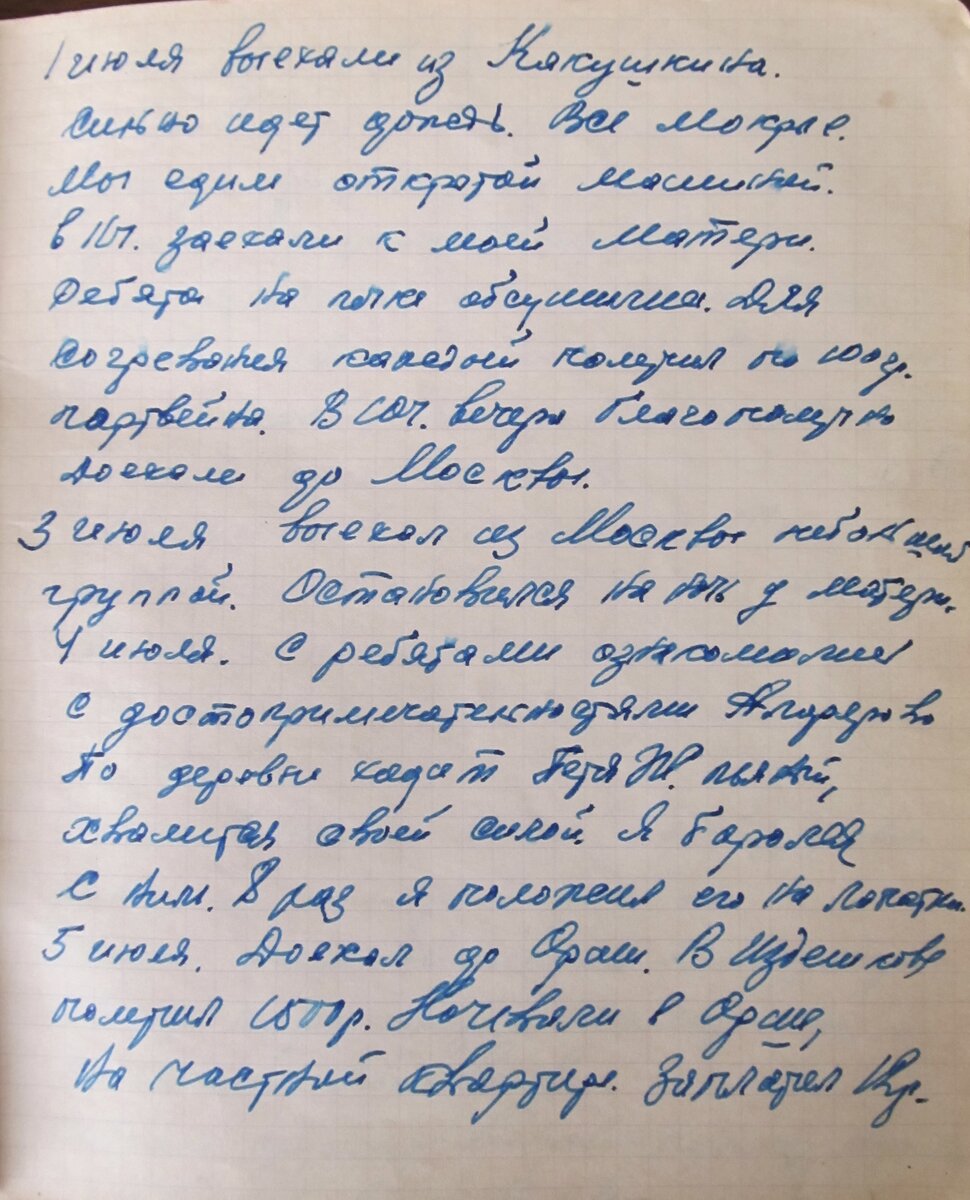 1 июля выехали из Кякушкина.
Сильно идет дождь. Все мокрые.
Мы едим открытой машиной.
в 11ч. заехали к моей матери.
Ребята на печке обсушились. Для
согревания каждый получил по 100 гр.
портвейна. В 10ч. вечера благополучно
доехали до Москвы.
3 июля выехал из Москвы небольшой
группой. Остановился на ночь у матери.
4 июля. С ребятами ознакомились
с достопримечательностями
По деревне ходит Петя Ж. пьяный,
хвалится своей силой. Я боролся
с ним. 8 раз я положил его на лопатки.
5 июля. Доехал до Орши. В Издешкове
получил 1500р. Ночевали в Орше,
на частной квартире. Заплатил